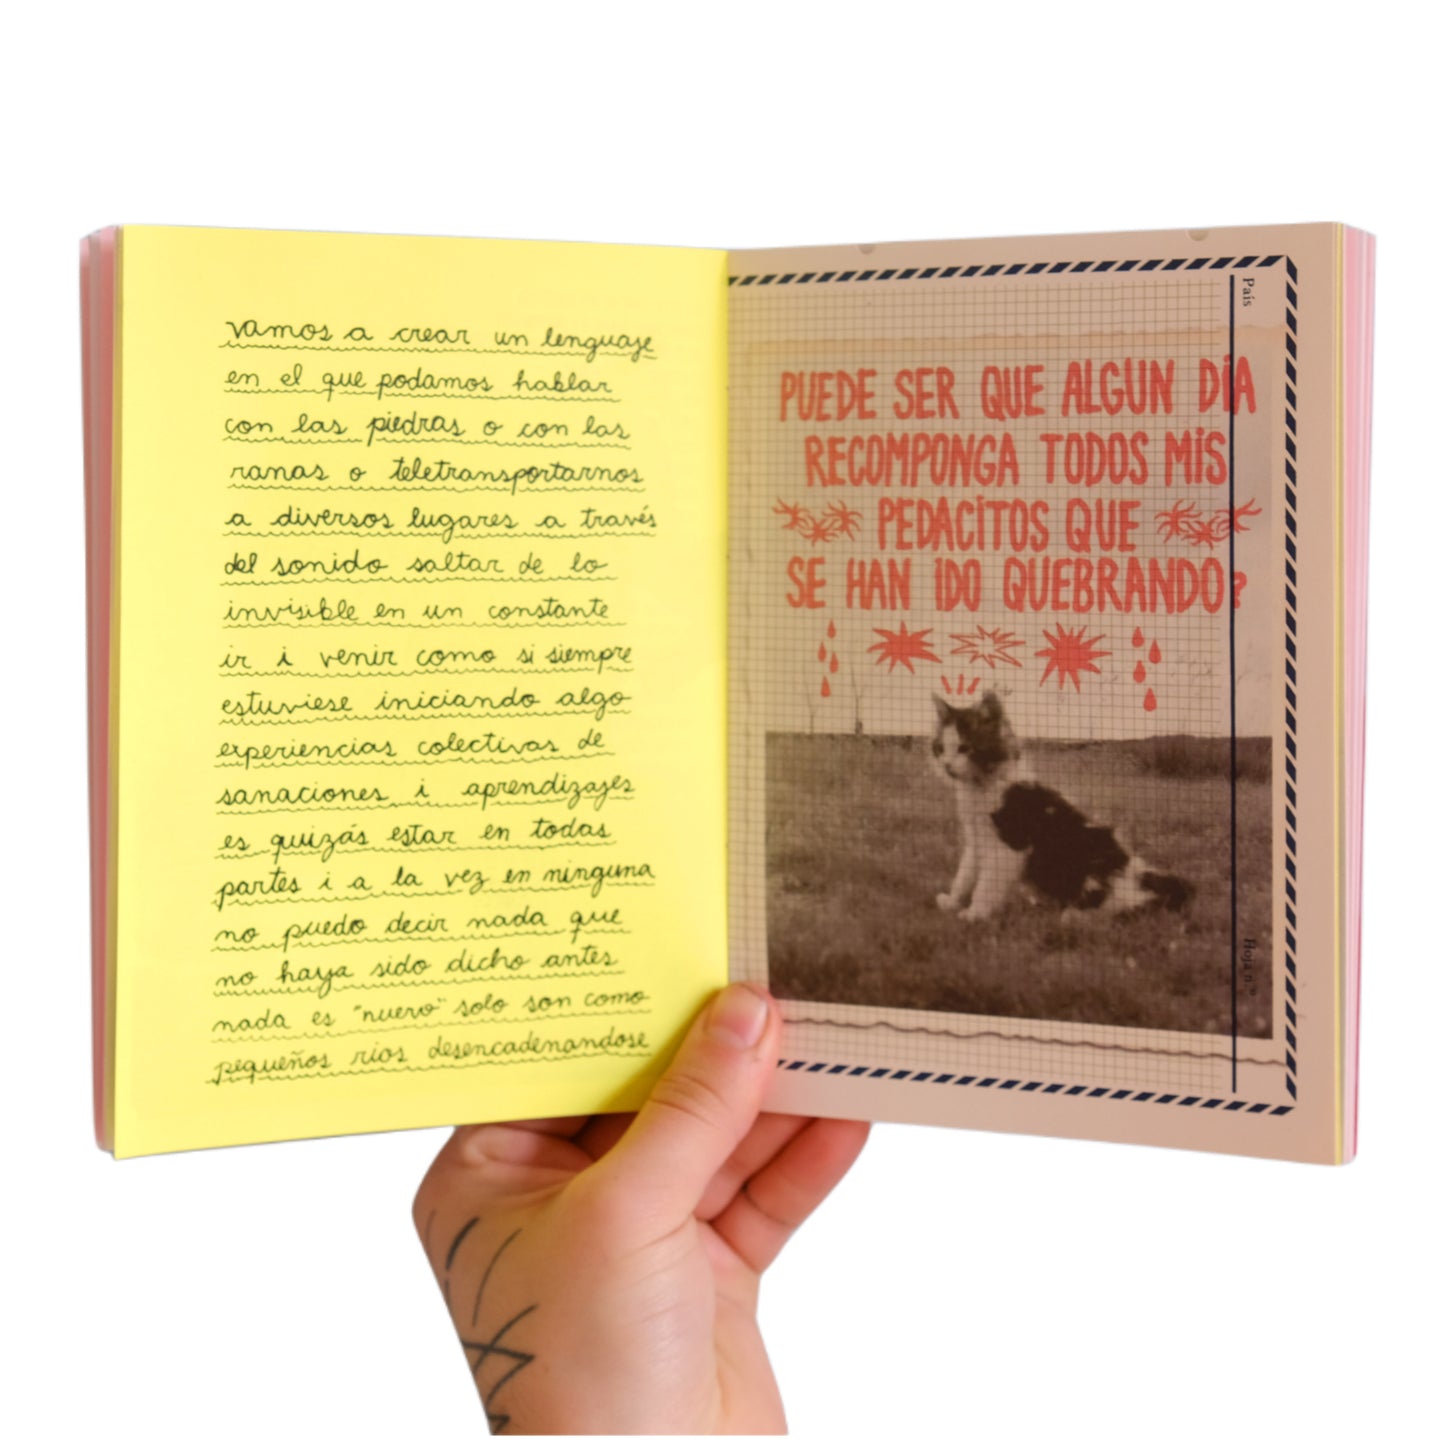 vamos a crear un lenguaje
en el que podamos hablar
con las piedras o con las
ranas o teletransportarnos
a diversos lugares a través
del sonido saltar de lo
invisible en un constante
ir i venir como si siempre
estuviese iniciando algo
experiencias colectivas de
sanaciones i aprendizajes
es quizás estar en todas
partes i a la vez en ninguna
no puedo decir nada que
no haya sido dicho antes
nada es "nuevo" solo son como
pequeños rios desencadenandose
País
PUEDE SER QUE ALGUN DíA
RECOMPONGA TODOS MiS
PEDACíTOS QUE
SE HAN IDO QUEBRANDO?
Hoja n.º